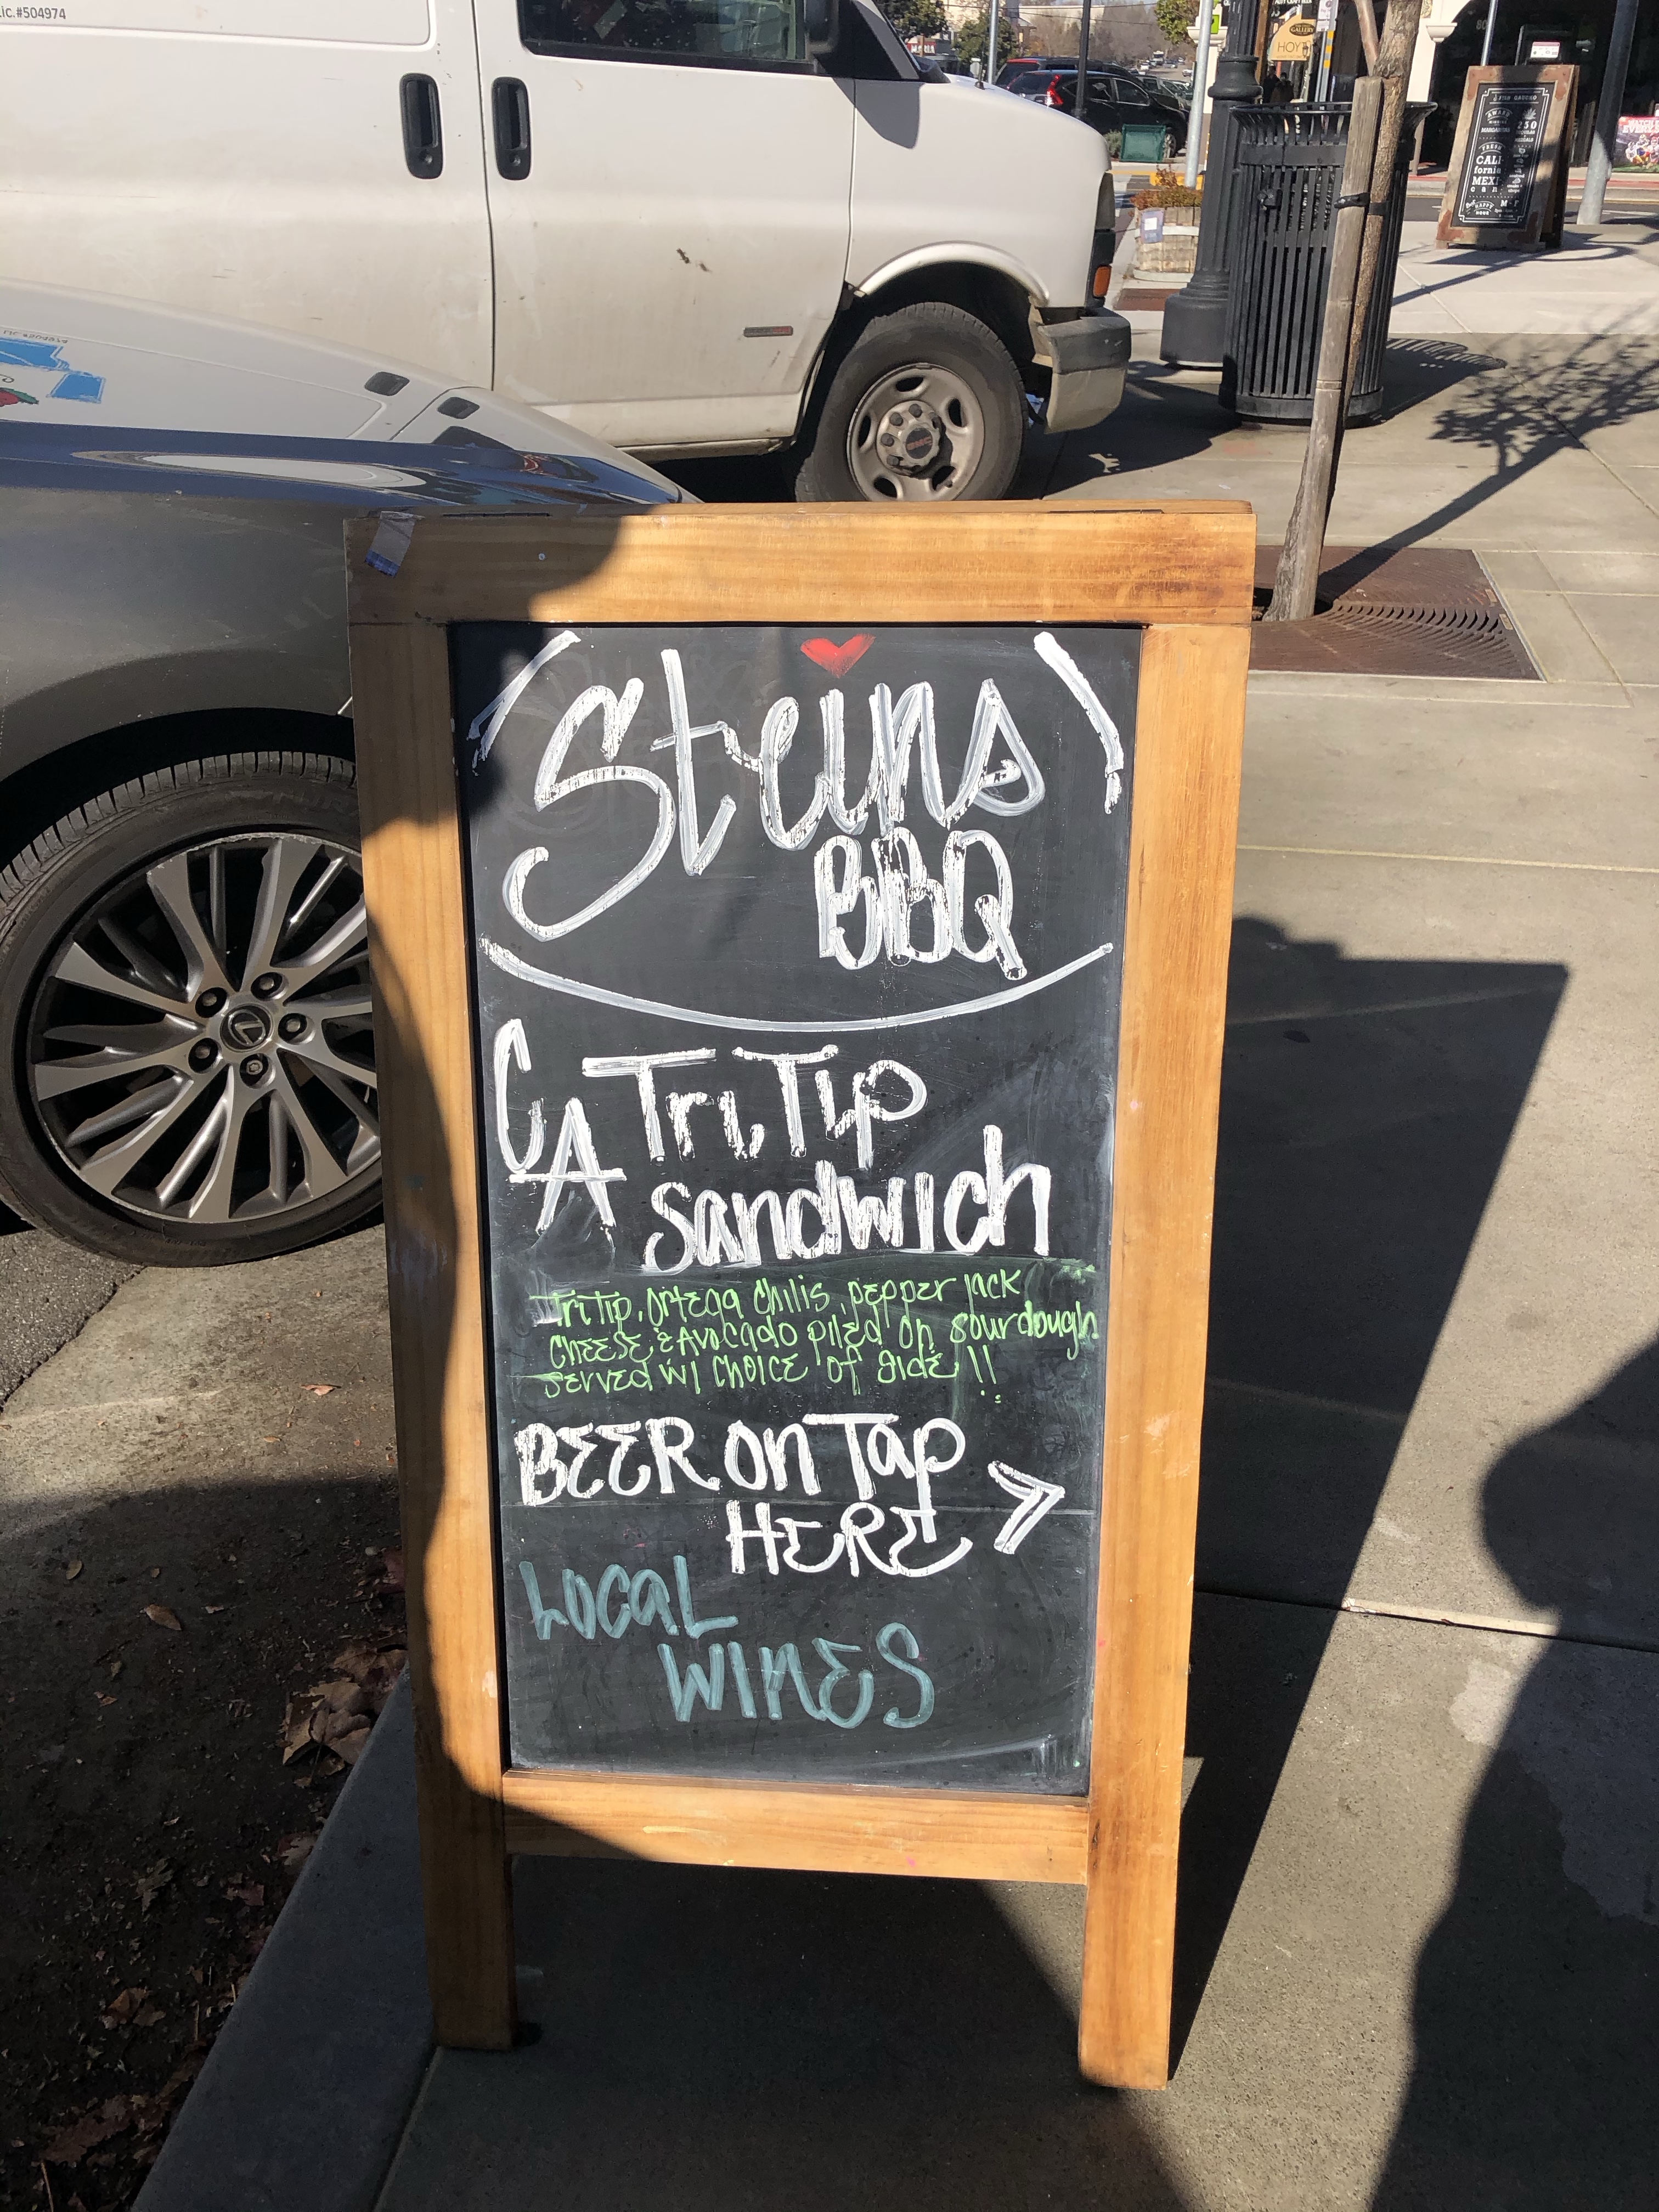 Lic.#504974
GALLERY
HOYT
CALI
fornia
MEXI
HAPPY
HOUR
GMC
Steins
BBQ
CA Tri Tip
Sandwich
Tri Tip, Ortega Chilis, pepper jack
cheese & Avocado piled on sourdough
served w/ choice of side!!
BEER on Tap
HERE >
LOCAL
WINES